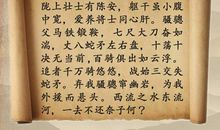 陇上壮士有陈安，躯干虽小腹
中宽，爱养将士同心肝。骢骢
父马铁锻鞍，七尺大刀奋如
湍，丈八蛇矛左右盘，十荡十
决无当前，百骑俱出如云浮。
追者千万骑悠悠，战始三交失
蛇矛。弃我骢窜幽岩，为我
外援而悬头。西流之水东流
河，一去不还奈子何？